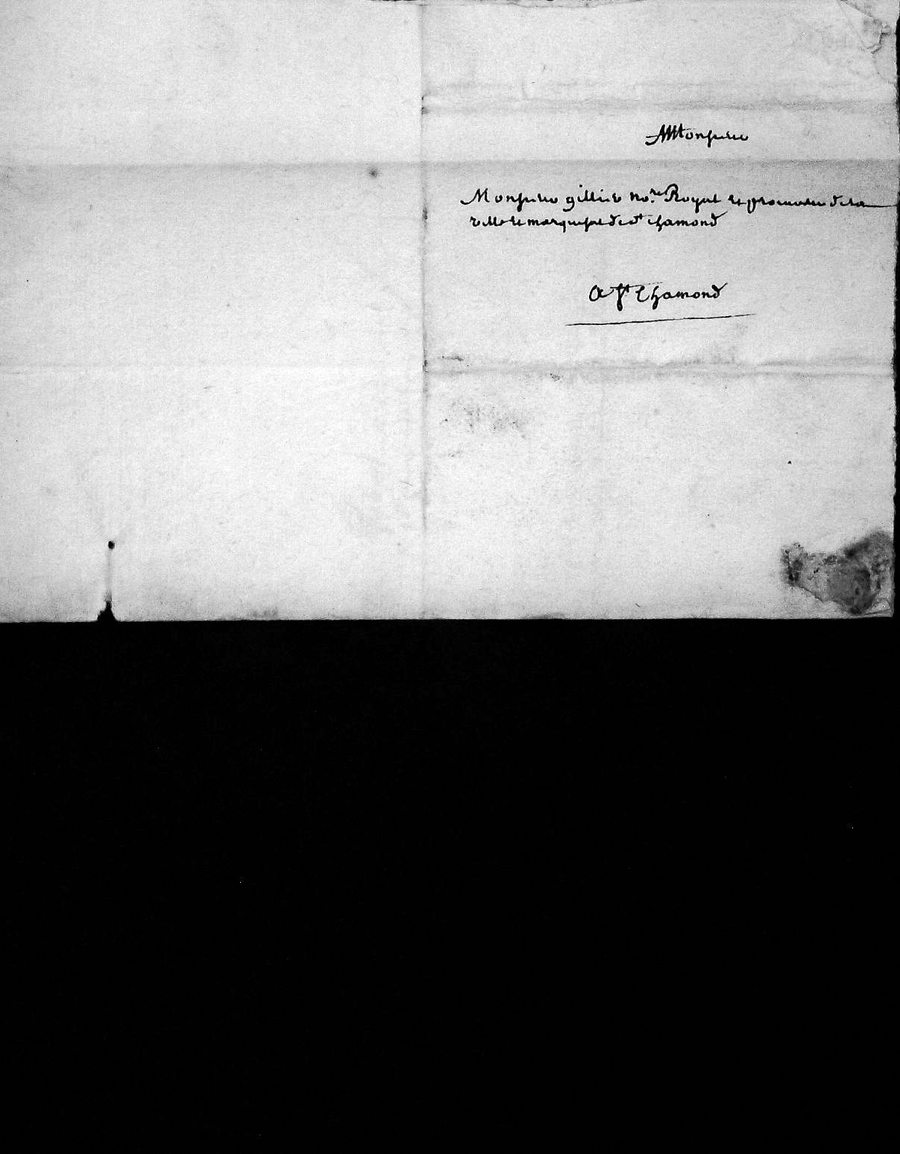 Monsieur
Monsieur gillier no.re Royal et procureur de la
ville et marquisat de st chamond
A st Chamond